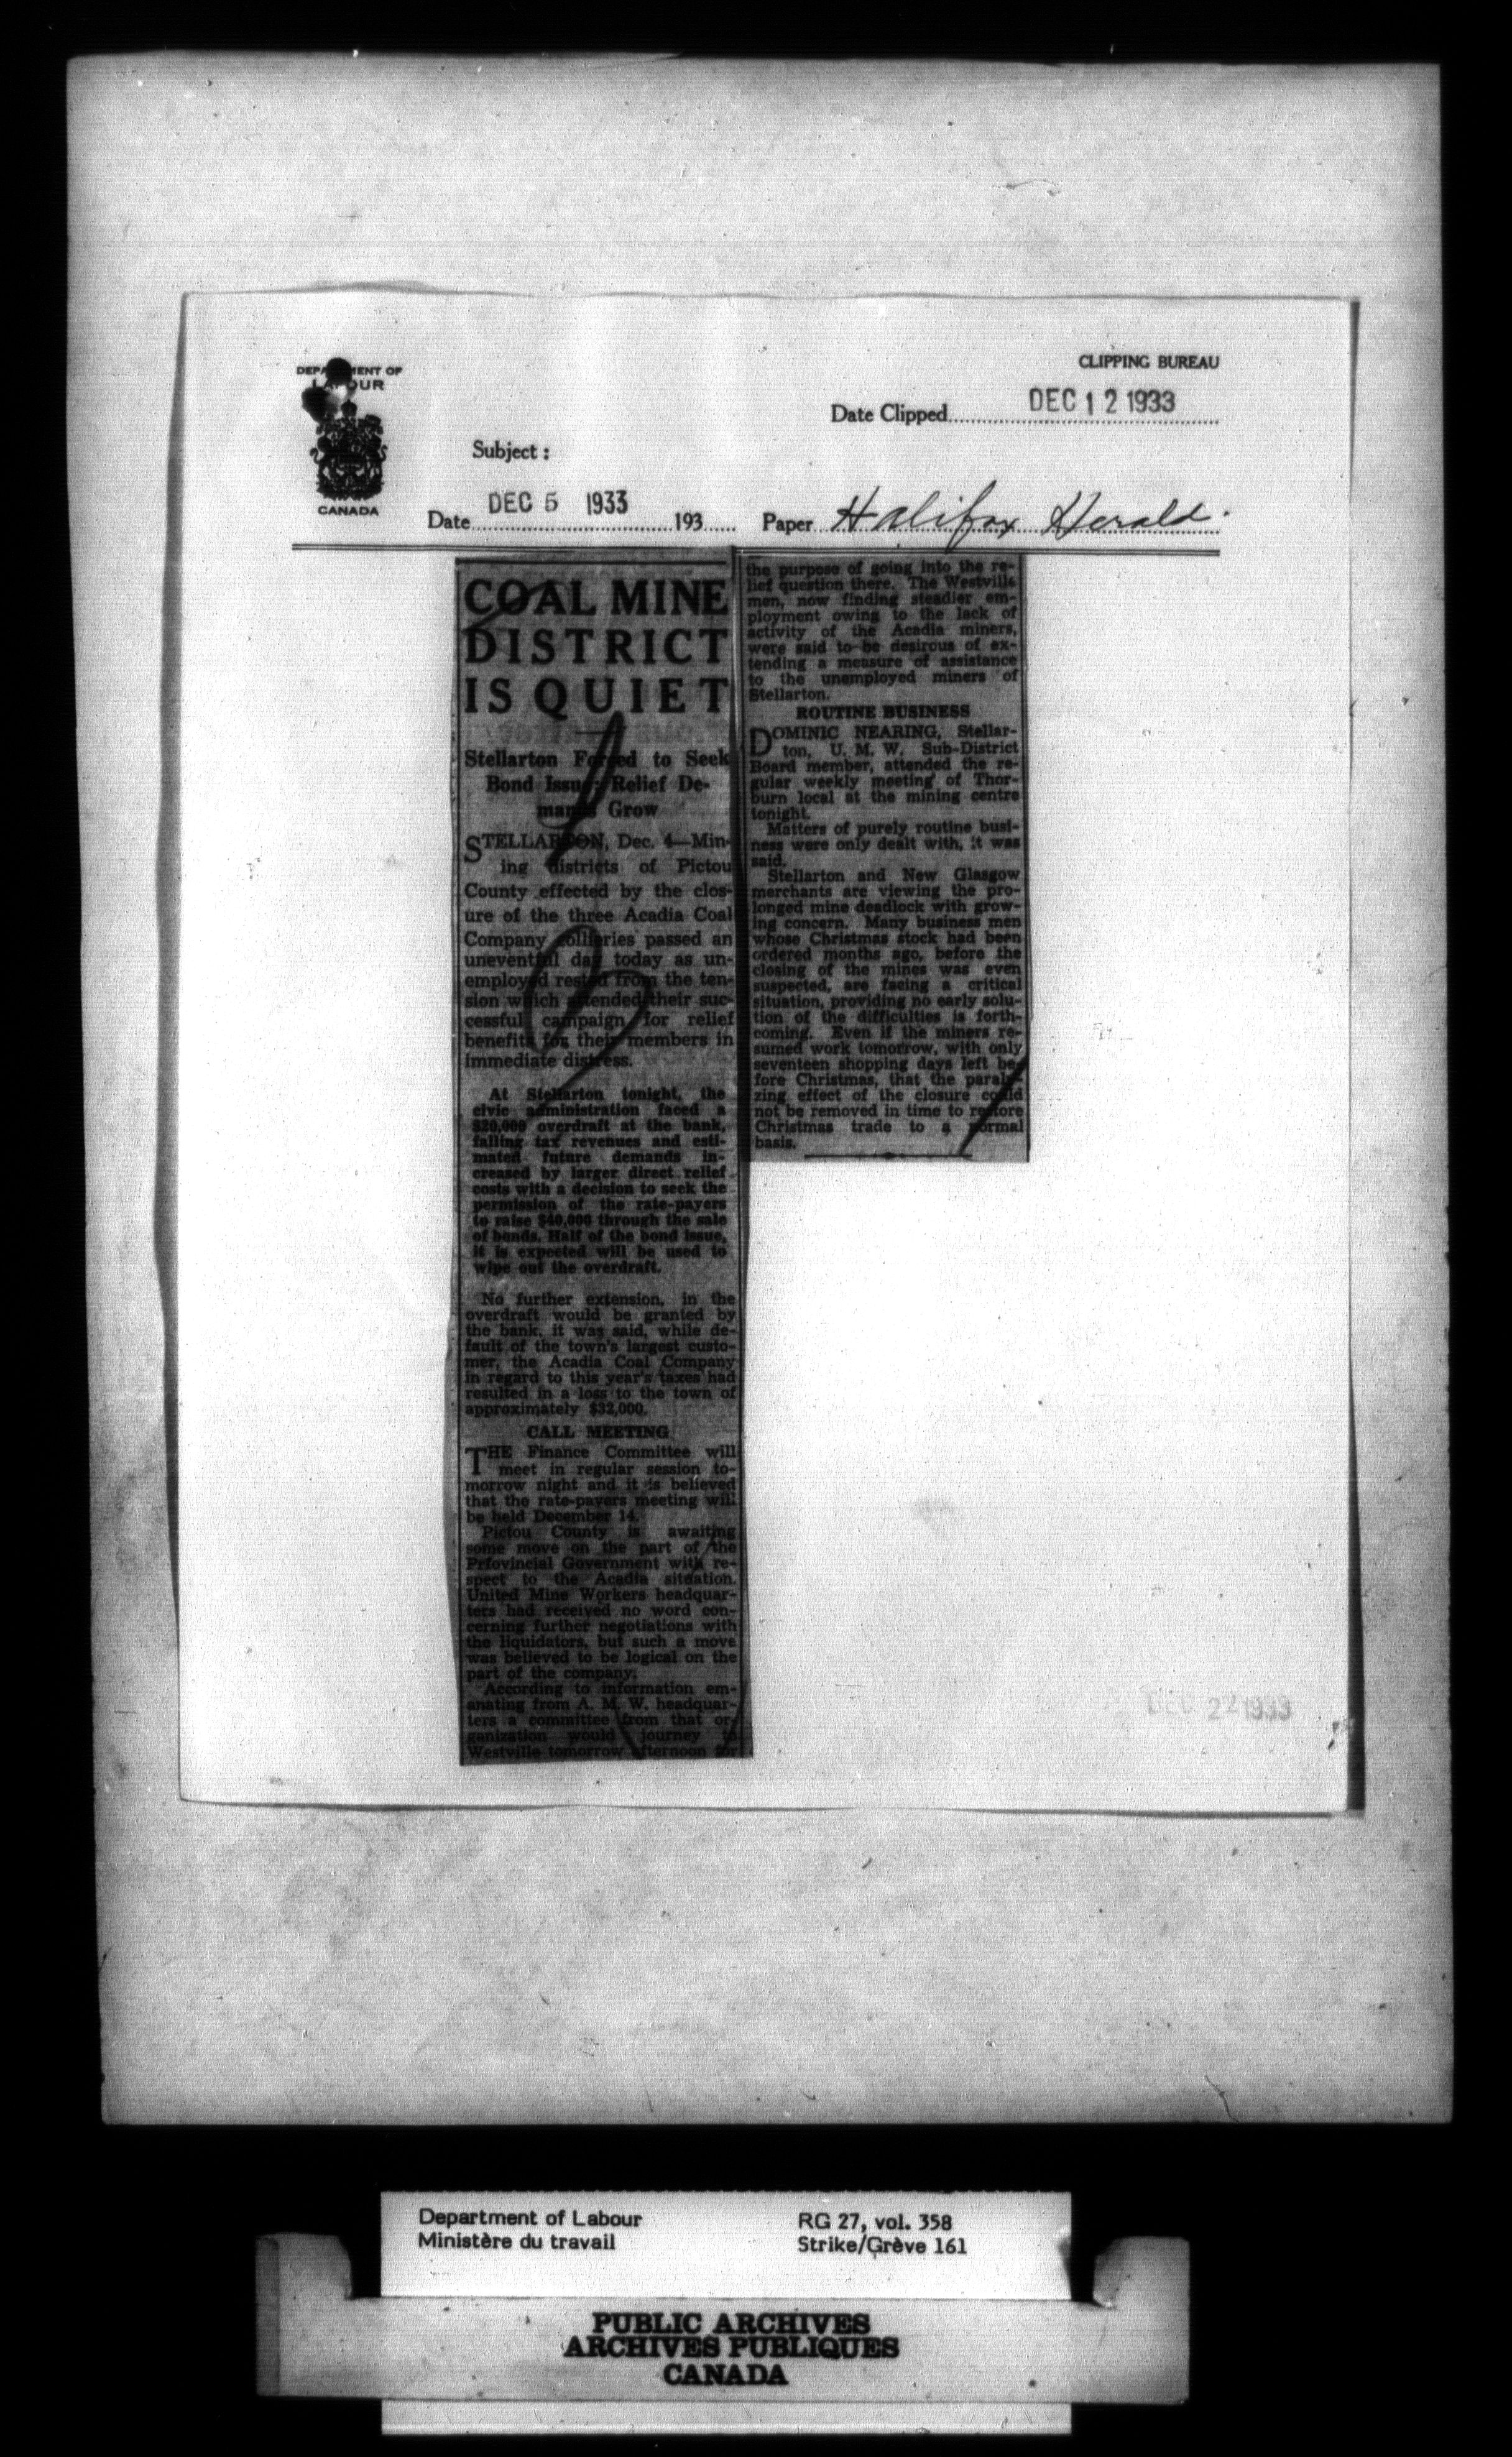 DEPARTMENT OF
LABOUR
CANADA
CLIPPING BUREAU
Date Clipped DEC 12 1933
Subject :
Date DEC 5 1933 193
Paper Halifax Herald.
COAL MINE
DISTRICT
IS QUIET
Stellarton Forced to Seek
Bond Issue; Relief De-
mands Grow
STELLARTON, Dec. 4—Min-
ing districts of Pictou
County effected by the clos-
ure of the three Acadia Coal
Company collieries passed an
uneventful day today as un-
employed rested from the ten-
sion which attended their suc-
cessful campaign for relief
benefits for their members in
immediate distress.
At Stellarton tonight, the
civic administration faced a
$20,000 overdraft at the bank,
falling tax revenues and esti-
mated future demands in-
creased by larger direct relief
costs with a decision to seek the
permission of the rate-payers
to raise $40,000 through the sale
of bonds. Half of the bond issue,
it is expected will be used to
wipe out the overdraft.
No further extension, in the
overdraft would be granted by
the bank, it was said, while de-
fault of the town's largest custo-
mer, the Acadia Coal Company
in regard to this year's taxes had
resulted in a loss to the town of
approximately $32,000.
CALL MEETING
THE Finance Committee will
meet in regular session to-
morrow night and it is believed
that the rate-payers meeting will
be held December 14.
Pictou County is awaiting
some move on the part of the
Prfovincial Government with re-
spect to the Acadia situation.
United Mine Workers headquar-
ters had received no word con-
cerning further negotiations with
the liquidators, but such a move
was believed to be logical on the
part of the company.
According to information em-
anating from A. M. W. headquar-
ters a committee from that or-
ganization would journey to
Westville tomorrow afternoon for
the purpose of going into the re-
lief question there. The Westville
men, now finding steadier em-
ployment owing to the lack of
activity of the Acadia miners,
were said to be desirous of ex-
tending a measure of assistance
to the unemployed miners of
Stellarton.
ROUTINE BUSINESS
DOMINIC NEARING, Stellar-
ton, U. M. W. Sub-District
Board member, attended the re-
gular weekly meeting of Thor-
burn local at the mining centre
tonight.
Matters of purely routine busi-
ness were only dealt with, it was
said.
Stellarton and New Glasgow
merchants are viewing the pro-
longed mine deadlock with grow-
ing concern. Many business men
whose Christmas stock had been
ordered months ago, before the
closing of the mines was even
suspected, are facing a critical
situation, providing no early solu-
tion of the difficulties is forth-
coming. Even if the miners re-
sumed work tomorrow, with only
seventeen shopping days left be-
fore Christmas, that the paraly-
zing effect of the closure could
not be removed in time to restore
Christmas trade to a normal
basis.
DEC 22 1933
Department of Labour
Ministère du travail
RG 27, vol. 358
Strike/Grève 161
PUBLIC ARCHIVES
ARCHIVES PUBLIQUES
CANADA